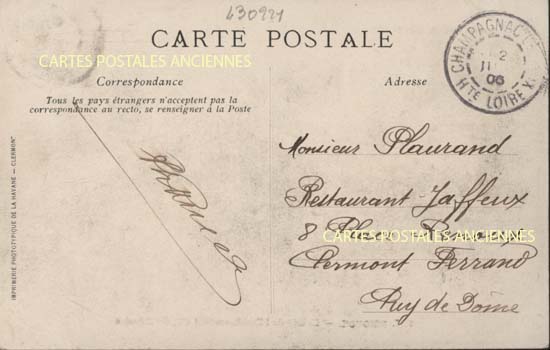 430921
CARTE POSTALE
CARTES POSTALES ANCIENNES
CHAMPAGNAC
11
06
HTE LOIRE
Correspondance
Adresse
Tous les pays étrangers n'acceptent pas la
correspondance au recto, se renseigner à la Poste
Monsieur Plaurand
Restaurant Jaffeux
8 Place
CARTES POSTALES ANCIENNES
Clermont Ferrand
Puy de Dôme
IMPRIMERIE PHOTOTYPIQUE DE LA HAVANE — CLERMONT